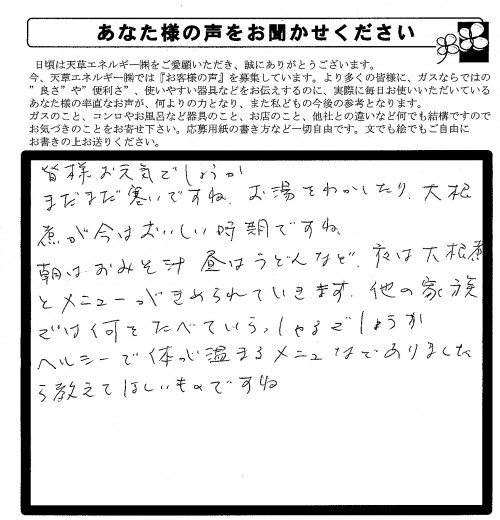 あなた様の声をお聞かせください
日頃は天草エネルギー㈱をご愛顧いただき、誠にありがとうございます。
今、天草エネルギー㈱では『お客様の声』を募集しています。より多くの皆様に、ガスならではの
"良さ"や"便利さ"、使いやすい器具などをお伝えするのに、実際に毎日お使いいただいている
あなた様の率直なお声が、何よりの力となり、また私どもの今後の参考となります。
ガスのこと、コンロやお風呂など器具のこと、お店のこと、他社との違いなど何でも結構ですので
お気づきのことをお寄せ下さい。応募用紙の書き方など一切自由です。文でも絵でもご自由に
お書きの上お送りください。
皆様お元気でしょうか
まだまだ寒いですね。お湯をわかしたり、大根
煮が今はおいしい時期ですね、
朝はおみそ汁 昼はうどんなど、夜は大根煮
とメニューがきめられていきます。他の家族
では何をたべていらっしゃるでしょうか
ヘルシーで体が温まるメニュなどありました
ら教えてほしいものですね